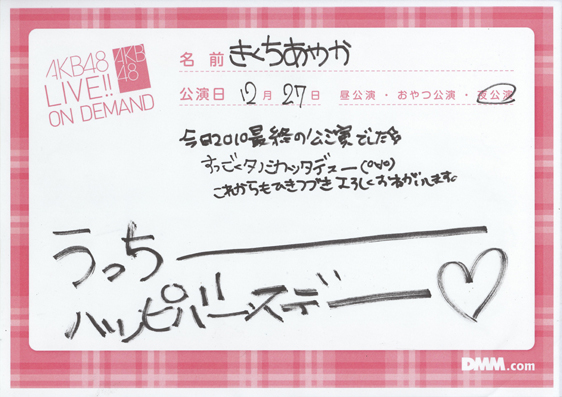 AKB48
LIVE!!
ON DEMAND
AKB
48
名前 きくちあやか
公演日 12月27日 昼公演・おやつ公演・夜公演
今日2010最終の公演でしたぁ
すっごくタノシカッタデスー(°∀°)
これからもひきつづきよろしくおねがいします。
うっちー
ハッピバースデー♡
DMM.com